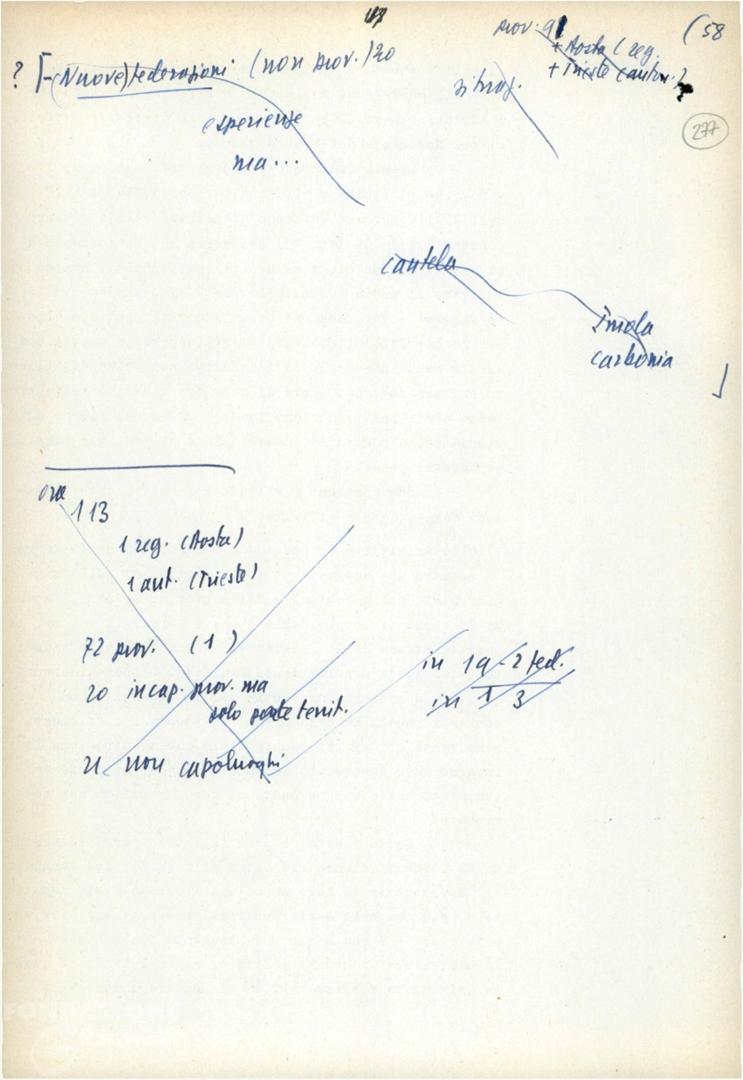 (58
prov. 91
+ Aosta (reg.
+ Trieste (auton.)
? [-(Nuove) federazioni (non prov.) 20
277
esperienze
ma...
cautela
Imola
carbonia
]
ora
113
1 reg. (Aosta)
1 aut. (Trieste)
72 prov. (1)
20 in cap. prov. ma
solo parte territ.
21 non capoluoghi
in 19 - 2 fed.
in 1 3